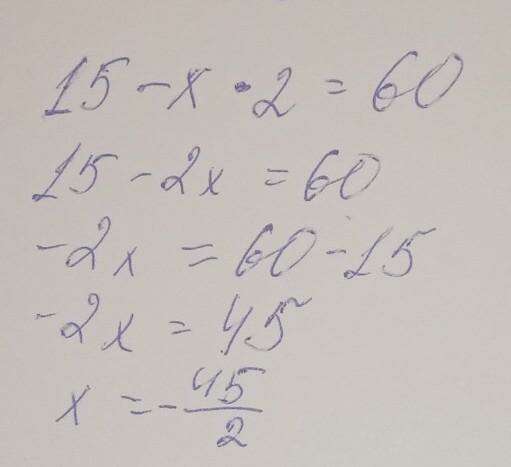 15 - x · 2 = 60
15 - 2x = 60
-2x = 60 - 15
-2x = 45
x = -45/2